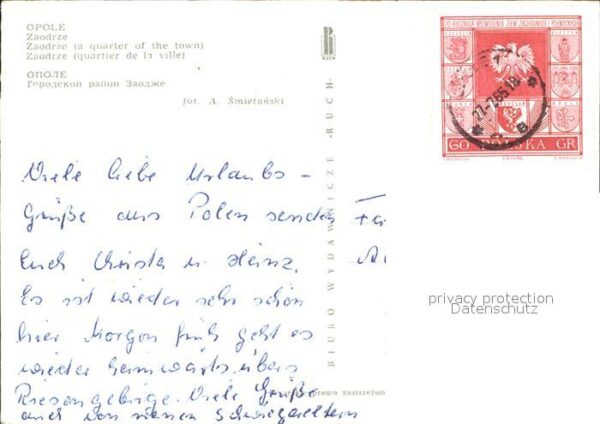 OPOLE
Zaodrze
Zaodrze (a quarter of the town)
Zaodrze (quartier de la ville)
ОПОЛЕ
Городской район Заодже
fot. A. Śmietański
RUCH
BIURO WYDAWNICZE „RUCH"
60 POLSKA GR
Viele liebe Urlaubs-
Grüße aus Polen senden
Euch Christa u. Heinz.
Es ist wieder sehr schön
hier Morgen früh geht es
wieder heimwärts übers
Riesengebirge. Viele Grüße
auch von meinen Schwiegereltern
Fa
privacy protection
Datenschutz